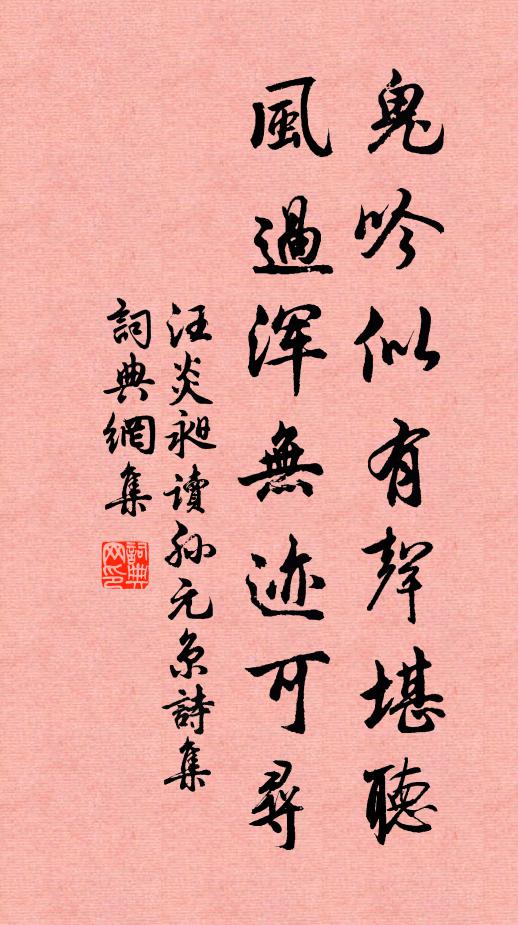 鬼吟似有聲堪聽
風過渾無迹可尋
汪炎昶讀孙元京詩集
詞典網集
詞典網印